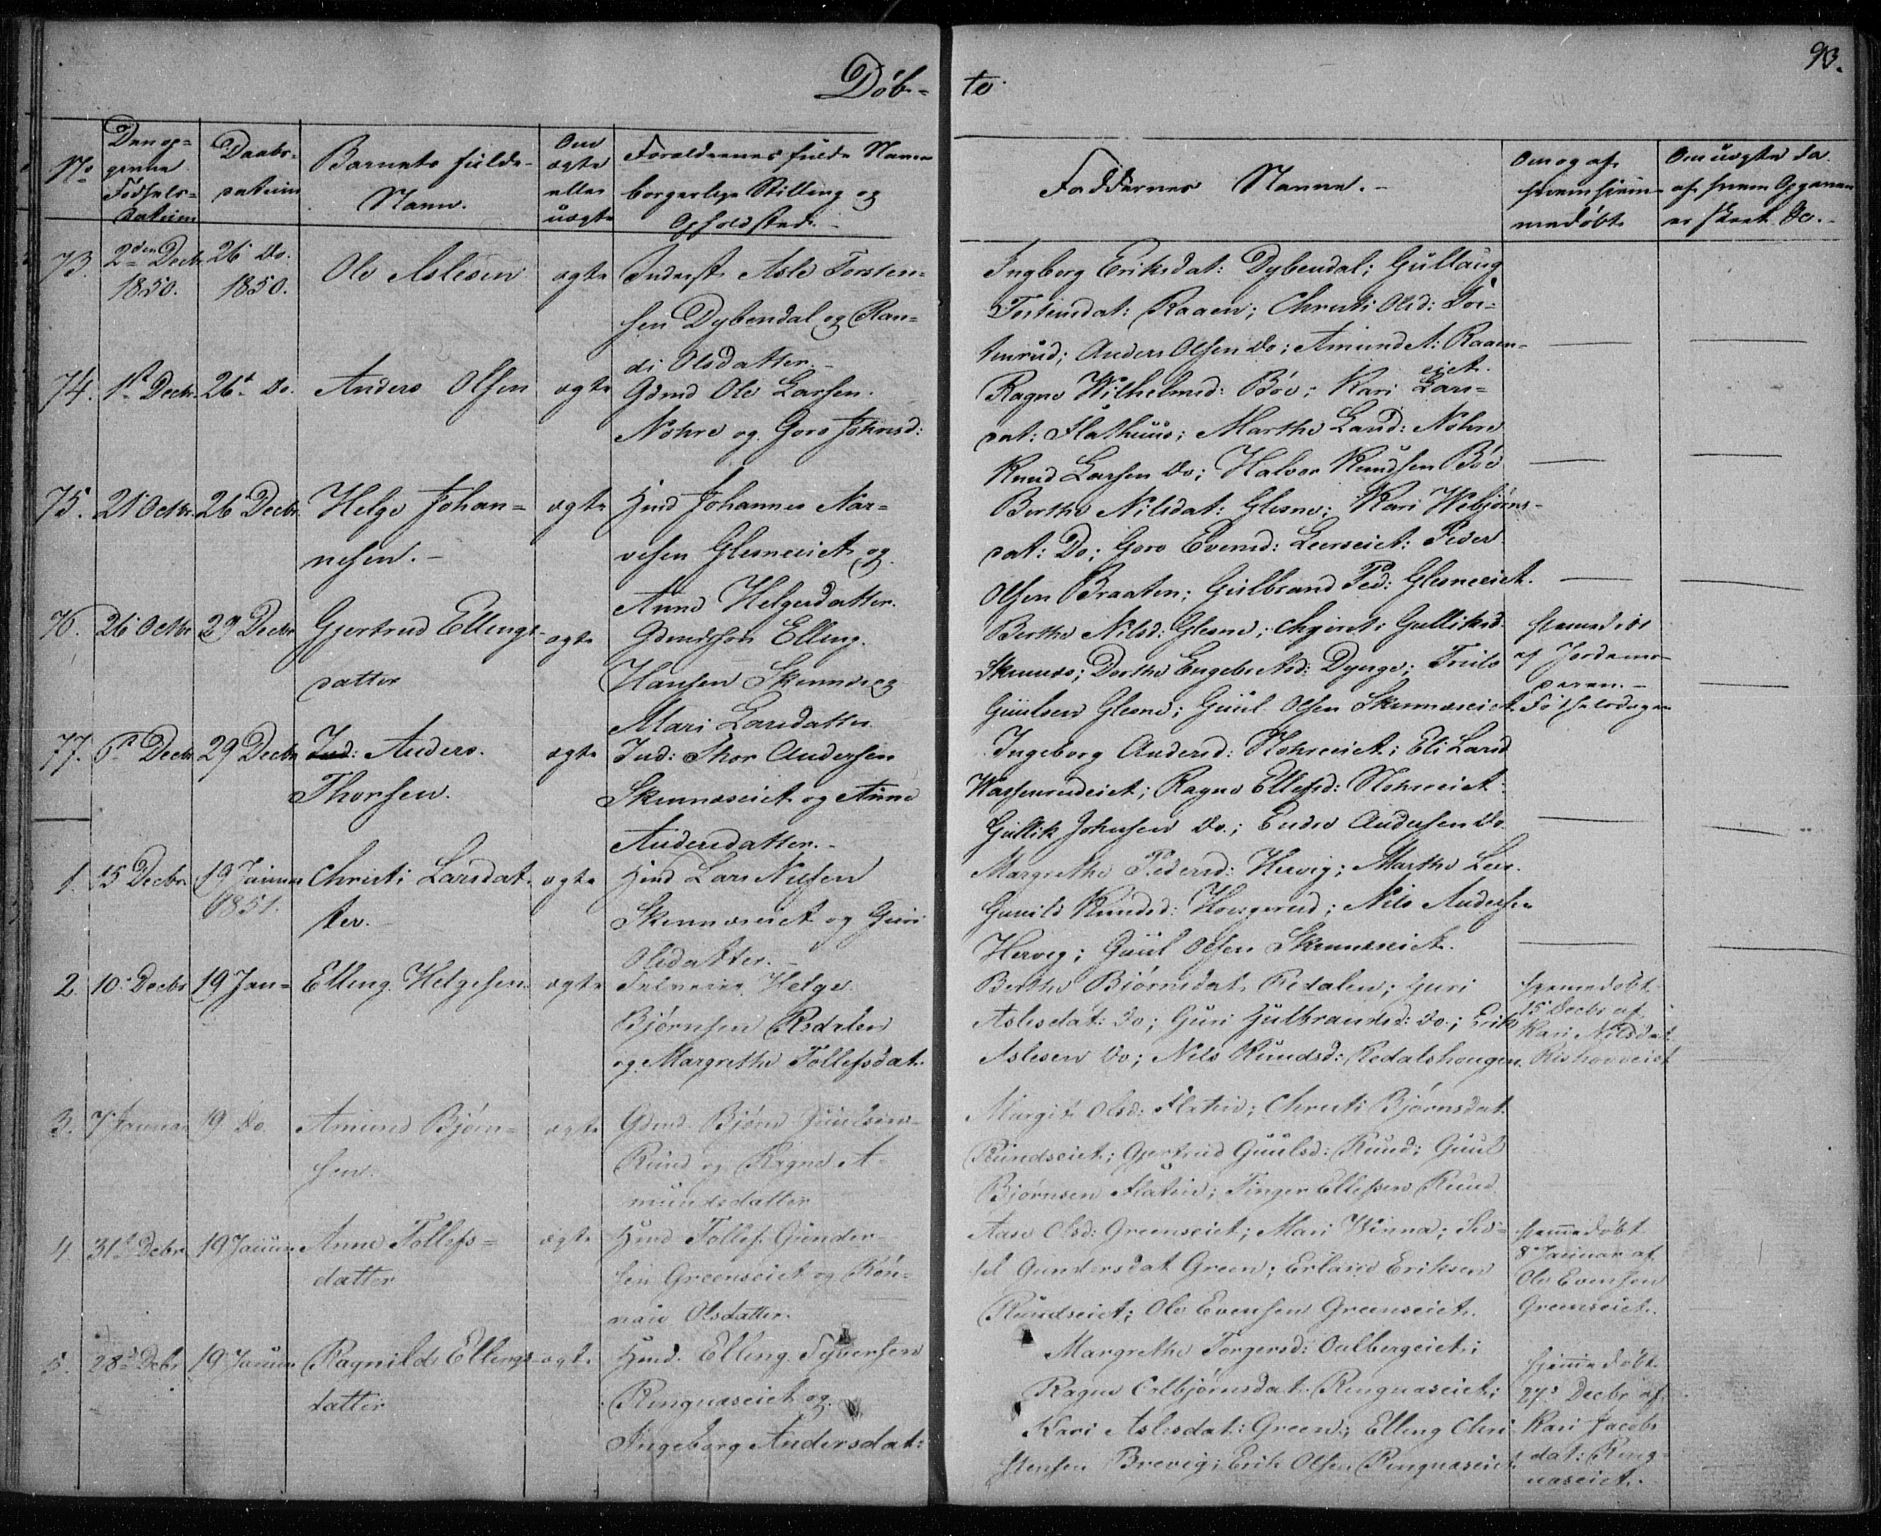 93.
Döb- te
No.
Den op-
givne
Födsels-
datum
Daabs-
datum
Barnets fulde
Navn.
Om
ægte
eller
uægte
Forældrenes fulde Navne
borgerlige Stilling og
Opholdsted.
Faddernes Navne. -
Om og af
hvem hjem-
medöbt
Om uægte da
af hvem Opgaven
er skeet &c. -
73. 2den Decbr 26 Do. Ole Aslesen ægte Inderst Asle Torsten-
1850. 1850.
sen Dybendal og Ran-
di Olsdatter
Ingborg Eriksdat: Dybendal; Gullaug
Tostensdat: Raaen; Christi Olsd:
Anders Olsen Do; Amund A: Raaen-
eiet.
74. 1st Decbr. 26t Do. Anders Olsen ægte Gdmd Ole Larsen
Nohre og Goro Johnsd:
Ragne Wilhelmsd: Böe; Kari Lars-
dat: Flathuus; Marthe Larsd: Nohre
Knud Larsen Do; Halvor Knudsen Böe
75. 21 Octbr. 26 Decbr. Helge Johan- ægte Hmd Johannes Nar-
nesen. -
vesen Glesneeiet og
Anne Helgesdatter.
Berthe Nilsdat: Glesne; Kari Webjörns-
dat: Do; Goro Evensd: Leerseiet: Peder
Olsen Braaten; Gulbrand Ped: Glesneeiet.
76. 26 Octbr 29 Decbr Gjertrud Ellings- ægte Gdmdsön Elling
datter
Hansen Skinnes og
Mari Larsdatter
Berthe Nilsd: Glesne; Gulliksd.
Skinnes; Dorthe Engebretsd: Dynge; Truls
Guulsen Glesne; Guul Olsen Skinnæseiet
hjemmedöbt
af Jordemo-
deren. -
Födselsdagen
77. 6te Decbr 29 Decbr Ind: Anders ægte Ind: Thor Andersen
Thorsen.
Skinnæseiet og Anne
Andersdatter. -
Ingeborg Andersd: Nohreeiet; Eli Larsd
Ragne Ellefsd: Nohreeiet
Gullik Johnsen Do.; Endre Andersen Do.
1. 15 Decbr 19 Januar Christi Larsdat- ægte Hmd Lars Nilsen
1851. ter.
Skinnæseiet og Guri
Olsdatter. -
Margrethe Pedersd: Hervig; Marthe Leer
Gunild Knudsd: ; Nils Andersen
Hervig; Guul Olsen Skinnæseiet.
2. 10 Decbr 19 Jan- Elling Helgesen ægte Selveier Helge
Björnsen Redalen
og Margrethe Tollefsdat.
Berthe Björnsdat Redalen; Guri
Aslesdat: Do; Guri Gulbrandsd: Do.; Erik
Aslesen Do; Nils Knudsd: Redalshougen
hjemmedöbt
15 Decbr af
Kari Nilsdat
3. 7 Januar 19 Do Amund Björn- ægte Gdmd. Björn Guulsen
sen.
Ruud og Ragne A-
mundsdatter
Margit Olsd: Flaten; Christi Björnsdat
Ruudseiet; Gjertrud Guulsd: Ruud; Guul
Björnsen Flaten; Tinger Ellefsen Ruud
4. 31t Decbr 19 Januar Anne Tollefs- ægte Hmd Tollef Gunder-
datter
sen Greenseiet og Rön-
nau Olsdatter.
Aase Olsd: Greenseiet; Mari Winna; Sid-
sel Gundersdat Green; Erland Eriksen
Ruudseiet; Ole Evensen Greenseiet.
hjemmedöbt
8 Januar af
Ole Evensen
Greenseiet.
5. 28d Decbr 19 Januar Ragnilde Ellings- ægte Hmd. Elling Syversen
datter
Ringnæseiet og
Ingeborg Andersdat:
Margrethe Torgersd: Oulbergeiet;
Ragne Colbjörnsdat. Ringnæseiet;
Kari Aslesdat: Green; Elling Chri-
stensen Brevig; Erik Olsen Ringnæseiet
hjemmedöbt
27s Decbr af
Kari Jacobs
dat: Ring-
næseiet.